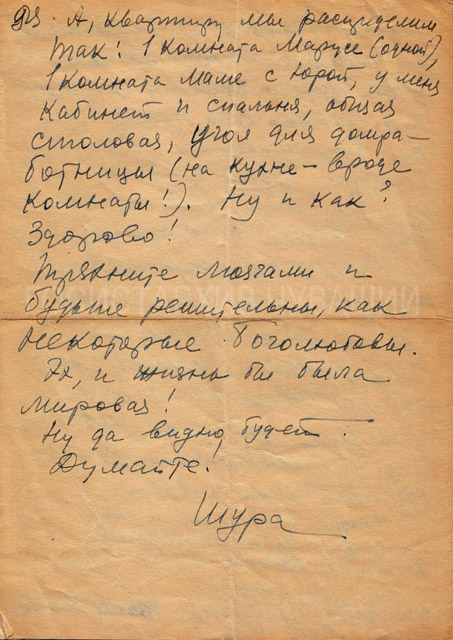 PS. А, квартиру мы распределим
так: 1 комната Марусе (одной),
1 комната Маше с Юрой, у меня
кабинет и спальня, общая
столовая, угол для домра-
ботницы (на кухне – вроде
комнаты!). Ну и как?
Здорово!
Тряхните мозгами и
будьте решительны, как
некоторые Боголюбовы.
Эх, и жизнь бы была
мировая!
Ну да видно будет.
Думайте!
Шура